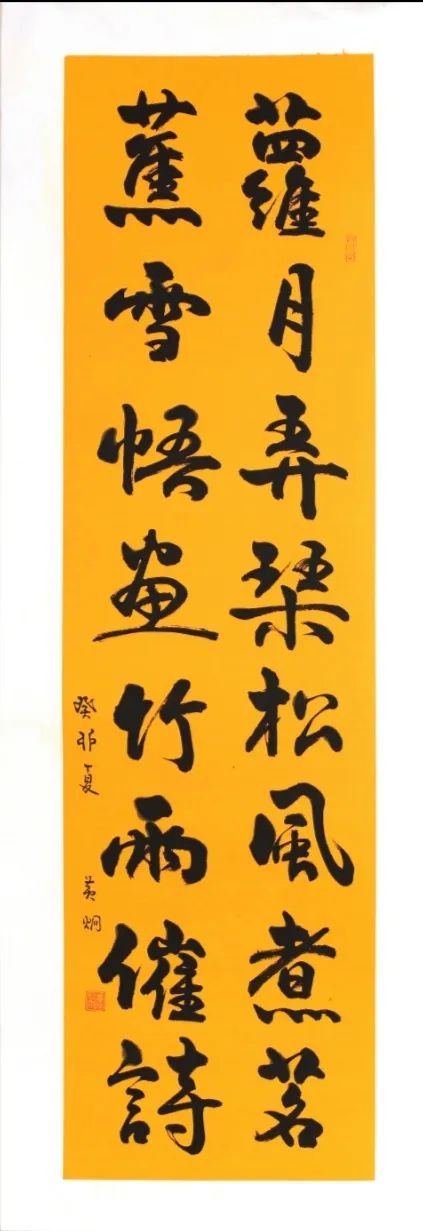 蘿月弄琹松風煮茗
蕉雪悟畫竹雨催詩
癸卯夏 黃炯